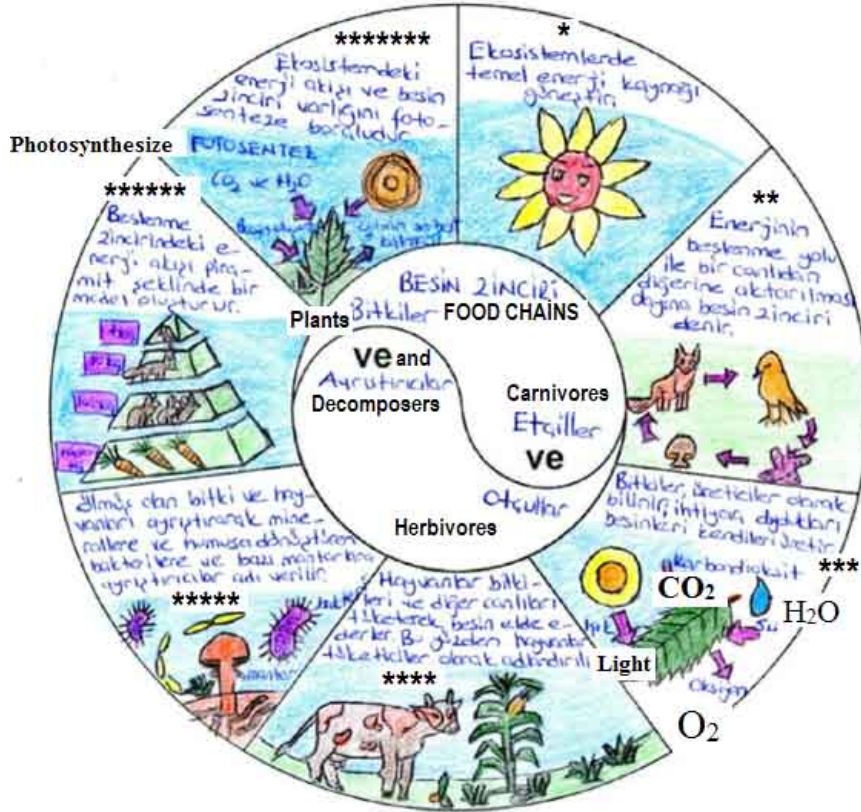 *
Ekosistemlerde
temel enerji kaynağı
güneştir.
**
Enerjinin
beslenme yolu
ile bir canlıdan
diğerine aktarılması
olayına besin zinciri
denir.
Bitkiler, üreticiler olarak
bilinir, ihtiyaç duydukları
besinleri kendileri üretir.
***
Karbondioksit
CO2
H2O
Işık
Light
Su
Oksijen
O2
Hayvanlar bitki-
leri ve diğer canlıları
tüketerek besin elde e-
derler. Bu yüzden hayvanlar
tüketiciler olarak adlandırılı
****
Ölmüş olan bitki ve hay-
vanları ayrıştırarak mine-
rallere ve humusa dönüştüren
bakterilere ve bazı mantarlara
ayrıştırıcılar adı verilir.
*****
mantar
******
Beslenme
zincirindeki e-
nerji akışı pira-
mit şeklinde bir
model oluşturur.
*******
Ekosistemdeki
enerji akışı ve besin
zinciri varlığını foto-
senteze borçludur.
Photosynthesize
FOTOSENTEZ
CO2 ve H2O
BESİN ZİNCİRİ
FOOD CHAİNS
Bitkiler
Plants
ve and
Ayrıştırıcılar
Decomposers
Carnivores
Etçiller
ve
Otçullar
Herbivores